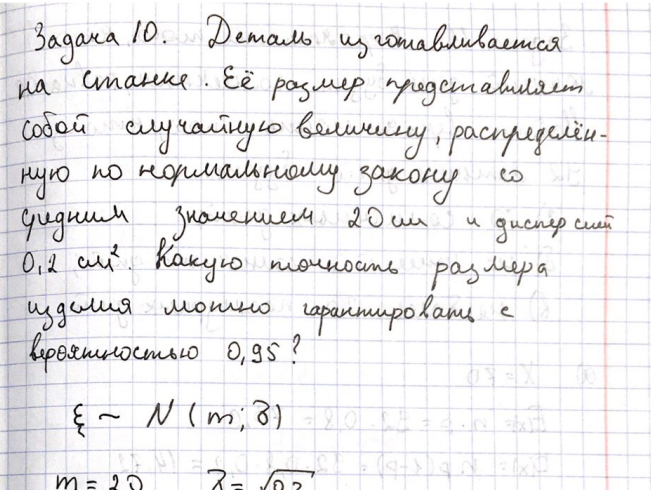 Задача 10. Деталь изготавливается
на станке. Её размер представляет
собой случайную величину, распределён-
ную по нормальному закону со
средним значением 20 см и дисперсией
0,2 см². Какую точность размера
изделия можно гарантировать с
вероятностью 0,95?
ξ ~ N (m; σ)
m = 20 σ = √0,2